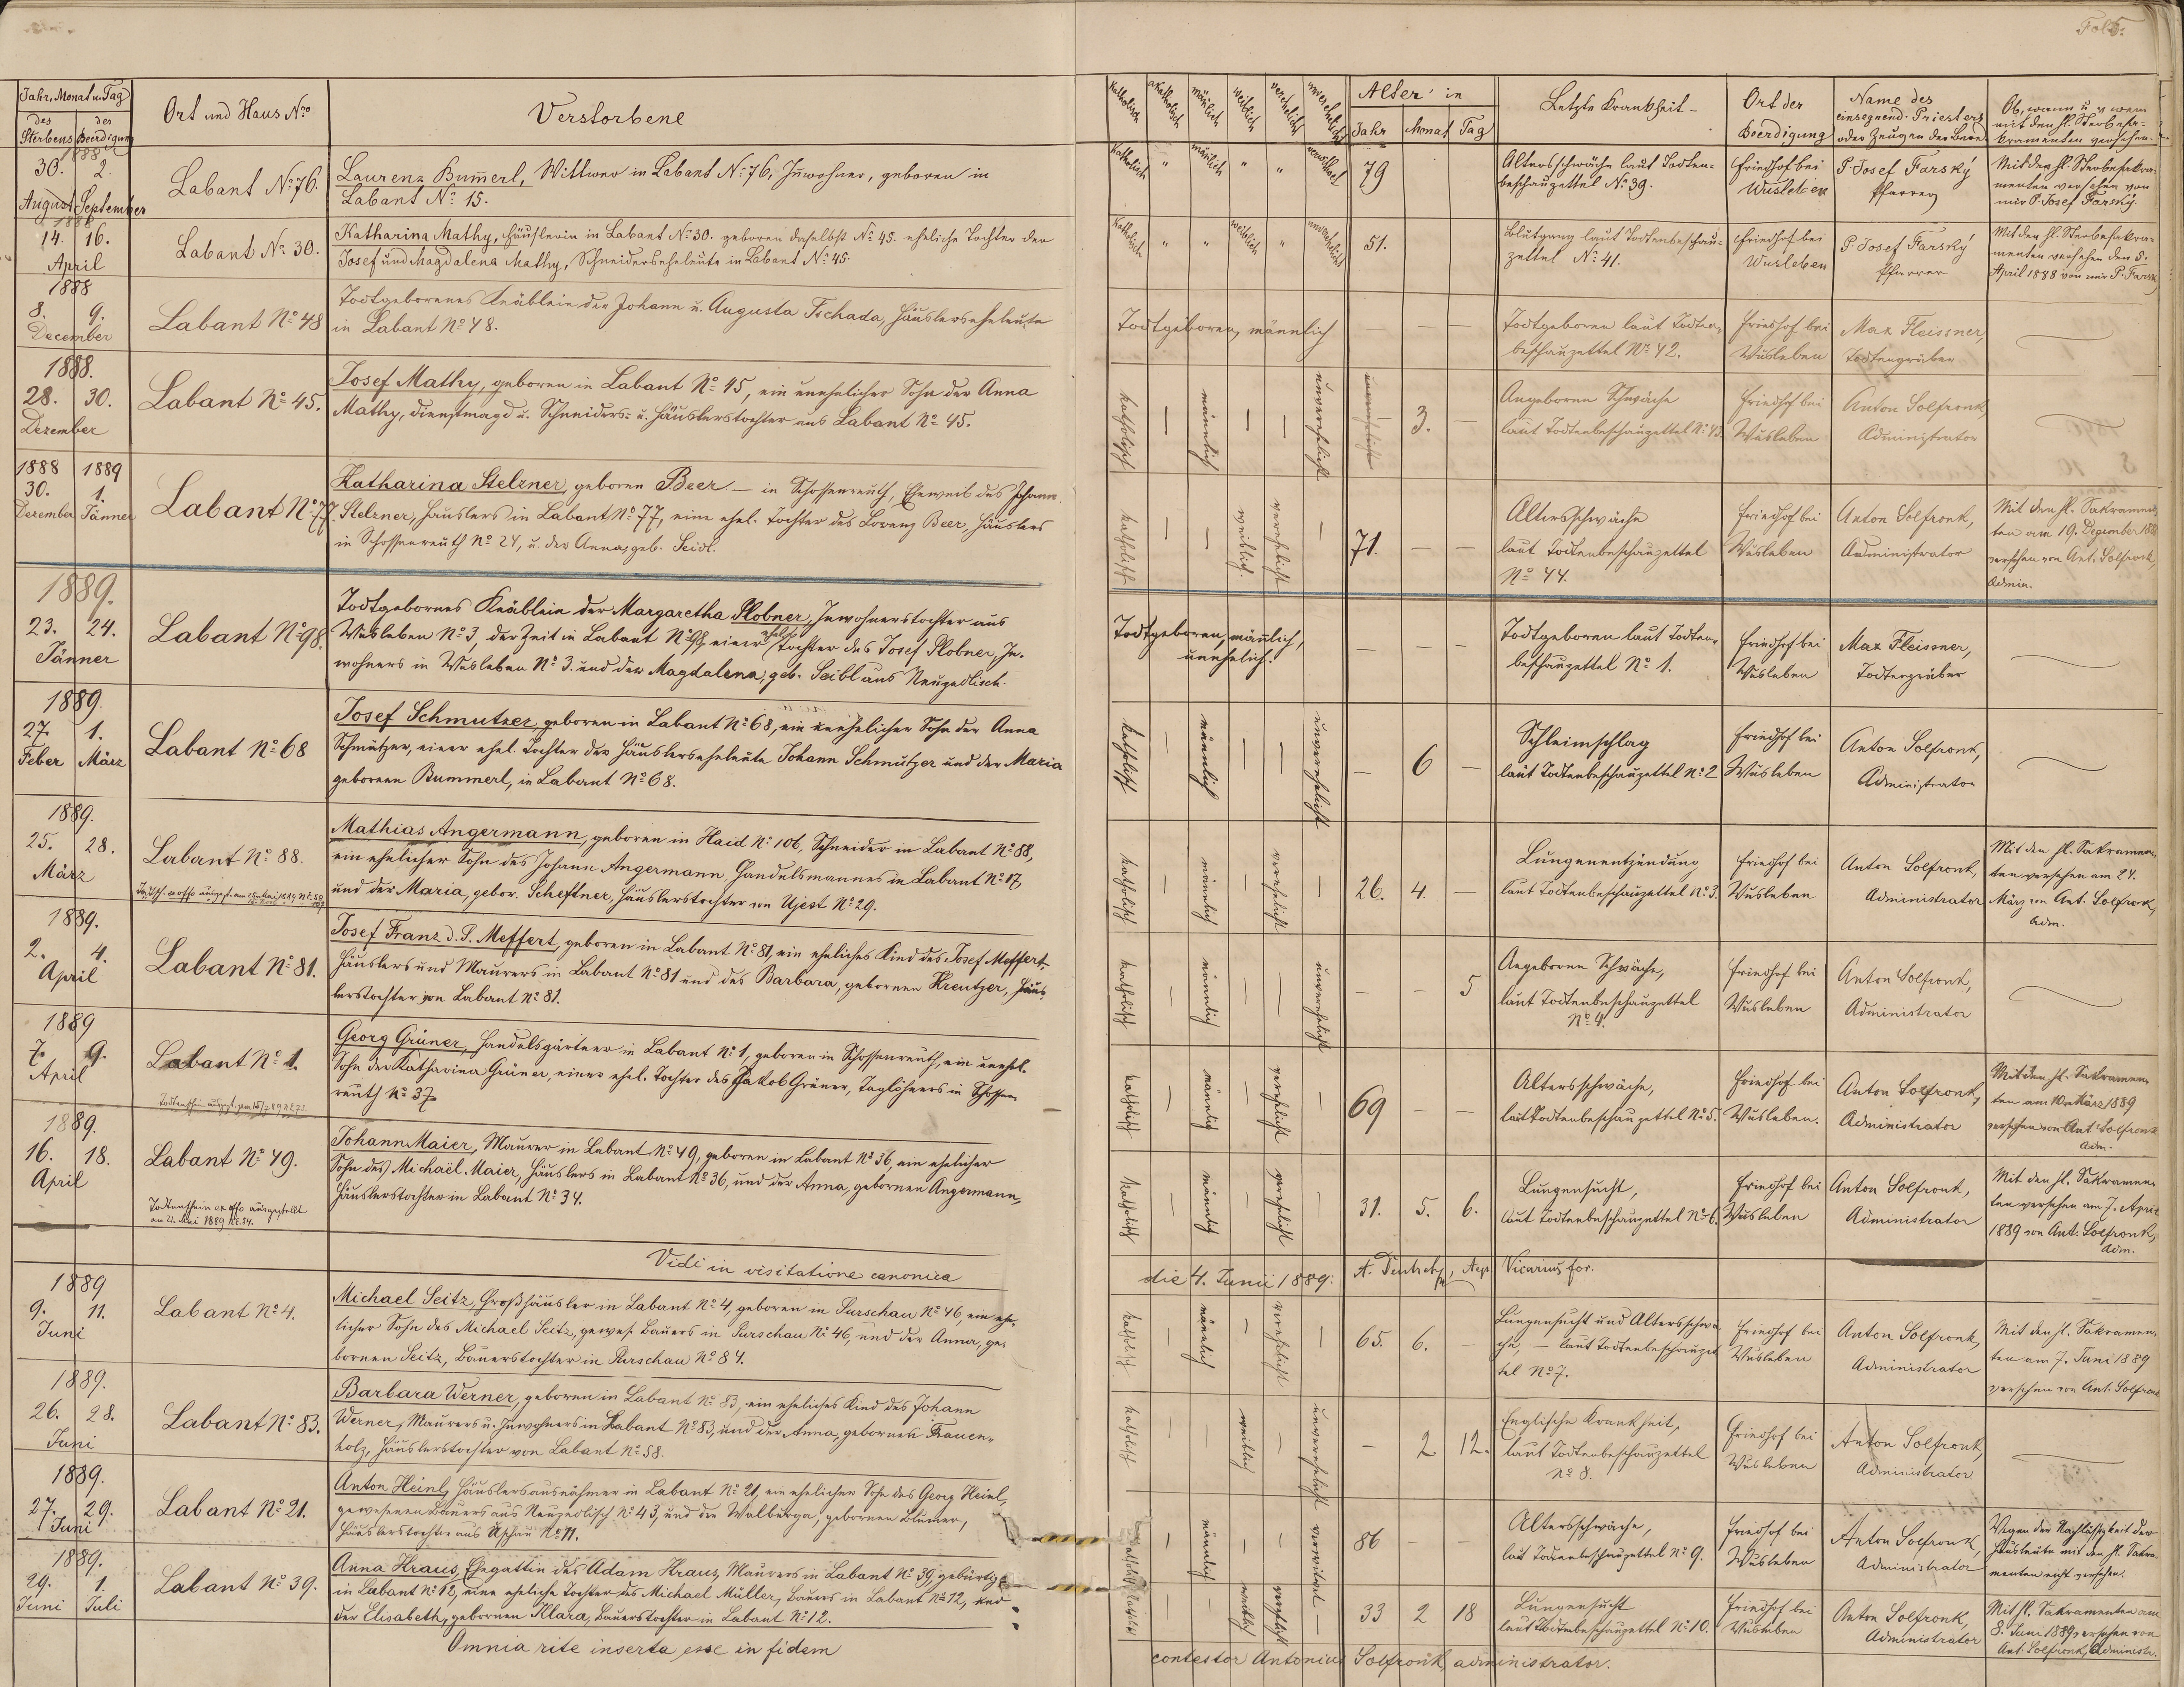 Fol. 5.
Jahr, Monat u. Tag
des Sterbens
der Beerdigung
Ort und Haus Nro
Verstorbene
katholisch
akatholisch
mänlich
weiblich
verehelicht
unverehelicht
Alter in
Jahr Monat Tag
Letzte Krankheit
Ort der Beerdigung
Name des
einsegnend. Priesters
oder Zeugen der Beerd.
Ob, wann u. v. wem
mit den hl. Sterbesa-
kramenten versehen.
1888
30. 2.
August September
Labant Nº 76.
Laurenz Bum̅erl, Wittwer in Labant Nº 76, Inwohner, geboren in
Labant Nº 15.
katholisch " mänlich " "
79
Altersschwäche laut Todten-
beschauzettel Nº 39.
Friedhof bei
Wusleben
P. Josef Farský
Pfarrer
Mit den hl. Sterbesakra-
menten versehen von
mir P. Josef Farský.
1888
14. 16.
April
Labant Nº 30.
Katharina Mathy, Häuslerin in Labant Nº 30. geboren daselbst Nº 45. eheliche Tochter der
Josef und Magdalena Mathy, Schneiderseheleute in Labant Nº 45.
katholisch " " weiblich " unverehelicht
51.
Blutgang laut Todtenbeschau-
zettel Nº 41.
Friedhof bei
Wusleben
P. Josef Farský
Pfarrer
Mit den hl. Sterbesakra-
menten versehen den 5.
April 1888 von mir P. Farský
1888
8. 9.
December
Labant Nº 48
Todtgeborenes Knäblein der Johann u. Augusta Tschada, Häuslerseheleute
in Labant Nº 48.
Todtgeboren, männlich — —
Todtgeboren laut Todten-
beschauzettel Nº 42.
Friedhof bei
Wusleben
Max Fleissner,
Todtengräber
1888.
28. 30.
Dezember
Labant Nº 45.
Josef Mathy, geboren in Labant Nº 45, ein unehelicher Sohn der Anna
Mathy, Dienstmagd u. Schneiders- u. Häuslerstochter aus Labant Nº 45.
katholisch — männlich — — unverehelicht
3. —
Angeborene Schwäche
laut Todtenbeschauzettel Nº 43.
Friedhof bei
Wusleben
Anton Solfronk,
Administrator
1888 1889
30. 1.
Dezember Jänner
Labant Nº 77.
Katharina Stelzner, geboren Beer — in Schossenreuth, Eheweib des Johann
Stelzner, Häuslers in Labant Nº 77, eine ehel. Tochter des Lorenz Beer, Häuslers
in Schossenreuth Nº 24, u. der Anna, geb. Seidl.
katholisch — — weiblich. verehelicht —
71. — —
Altersschwäche
laut Todtenbeschauzettel
Nº 44.
Friedhof bei
Wusleben
Anton Solfronk,
Administrator
Mit den hl. Sakramen-
ten am 19. Dezember 1888
versehen von Ant. Solfronk,
Admin.
1889.
23. 24.
Jänner
Labant Nº 98.
Todtgebornes Knäblein der Margaretha Plobner, Inwohnerstochter aus
Wusleben Nº 3, der Zeit in Labant Nº 98, einer ehel. Tochter des Josef Plobner, In-
wohners in Wusleben Nº 3. und der Magdalena, geb. Seibl aus Neuzedlisch.
Todtgeboren, mänlich,
unehelich. — — —
Todtgeboren laut Todten-
beschauzettel Nº 1.
Friedhof bei
Wusleben
Max Fleissner,
Todtengräber
1889.
27. 1.
Feber März
Labant Nº 68
Josef Schmutzer, geboren in Labant Nº 68, ein unehelicher Sohn der Anna
Schmutzer, einer ehel. Tochter der Häuslerseheleute Johann Schmutzer und der Maria
gebornen Bummerl, in Labant Nº 68.
katholisch — männlich — — unverehelicht
— 6 —
Schleimschlag
laut Todtenbeschauzettel Nº 2
Friedhof bei
Wusleben
Anton Solfronk,
Administrator
1889.
25. 28.
März
Labant Nº 88.
Mathias Angermann, geboren in Haid Nº 106, Schneider in Labant Nº 88,
ein ehelicher Sohn des Johann Angermann, Handelsmannes in Labant Nº 17,
und der Maria, gebor. Scheftner, Häuslerstochter von Ujest Nº 29.
katholisch — männlich — verehelicht —
26. 4. —
Lungenentzündung
laut Todtenbeschauzettel Nº 3.
Friedhof bei
Wusleben
Anton Solfronk,
Administrator
Mit den hl. Sakramen-
ten versehen am 24.
März von Ant. Solfronk,
Adm.
1889.
2. 4.
April
Labant Nº 81.
Josef Franz d. P. Meffert, geboren in Labant Nº 81, ein eheliches Kind des Josef Meffert,
Häuslers und Maurers in Labant Nº 81 und des Barbara, gebornen Kreutzer, Häus-
lerstochter von Labant Nº 81.
katholisch — männlich — — unverehelicht
— — 5
Angeborne Schwäche,
laut Todtenbeschauzettel
Nº 4.
Friedhof bei
Wusleben
Anton Solfronk,
Administrator
1889
7. 9.
April
Labant Nº 1.
Georg Grüner, Handelsgärtner in Labant Nº 1, geboren in Schossenreuth, ein unehel.
Sohn der Katharina Grüner, einer ehel. Tochter des Jakob Grüner, Taglöhners in Schossen-
reuth Nº 37.
katholisch — männlich — verehelicht —
69 — —
Altersschwäche,
laut Todtenbeschauzettel Nº 5.
Friedhof bei
Wusleben.
Anton Solfronk,
Administrator
Mit den hl. Sakramen-
ten am 10. März 1889
versehen von Ant. Solfronk
Adm.
1889.
16. 18.
April
Labant Nº 49.
Todtenschein ex offo ausgestellt
am 21. Mai 1889 NE. 34.
Johann Maier, Maurer in Labant Nº 49, geboren in Labant Nº 36, ein ehelicher
Sohn des Michael Maier, Häuslers in Labant Nº 36, und der Anna, gebornen Angermann,
Häuslerstochter in Labant Nº 34.
katholisch — männlich — verehelicht —
31. 5. 6.
Lungensucht,
laut Todtenbeschauzettel Nº 6.
Friedhof bei
Wusleben
Anton Solfronk,
Administrator
Mit den hl. Sakramen-
ten versehen am 7. April
1889 von Ant. Solfronk,
Adm.
Vidi in visitatione canonica
die 4. Junii 1889. Vicarius for.
1889
9. 11.
Juni
Labant Nº 4.
Michael Seitz, Großhäusler in Labant Nº 4, geboren in Purschau Nº 46, ein ehe-
licher Sohn des Michael Seitz, gewes. Bauers in Purschau Nº 46, und der Anna, ge-
bornen Seitz, Bauerstochter in Purschau Nº 84.
katholisch — männlich — verehelicht —
65. 6. —
Lungensucht und Altersschwä-
che, — laut Todtenbeschauzet-
tel Nº 7.
Friedhof bei
Wusleben
Anton Solfronk,
Administrator
Mit den hl. Sakramen-
ten am 7. Juni 1889
versehen von Ant. Solfronk
1889.
26. 28.
Juni
Labant Nº 83.
Barbara Werner, geboren in Labant Nº 83, ein eheliches Kind des Johann
Werner, Maurers u. Inwohners in Labant Nº 83, und der Anna, gebornen Frauen-
holz, Häuslerstochter von Labant Nº 58.
katholisch — — weiblich — unverehelicht
— 2 12.
Englische Krankheit,
laut Todtenbeschauzettel
Nº 8.
Friedhof bei
Wusleben
Anton Solfronk,
Administrator
1889.
27. 29.
Juni
Labant Nº 21.
Anton Heinl, Häuslersausnähmer in Labant Nº 21, ein ehelicher Sohn des Georg Heinl,
gewesenen Bauers aus Neuzedlisch Nº 43, und der Walburga, gebornen Blümer,
Häuslerstochter aus Nº 11.
katholisch — männlich — — verwitwet
86 — —
Altersschwäche,
laut Todtenbeschauzettel Nº 9.
Friedhof bei
Wusleben
Anton Solfronk,
Administrator
Wegen der Nachlässigkeit der
Hausleute mit den hl. Sakra-
menten nicht versehen.
1889.
29. 1.
Juni Juli
Labant Nº 39.
Anna Kraus, Ehegattin des Adam Kraus, Maurers in Labant Nº 39, gebürtig
in Labant Nº 12, eine eheliche Tochter des Michael Müller, Bauers in Labant Nº 12, und
der Elisabeth, gebornen Klara, Bauerstochter in Labant Nº 12.
katholisch — — weiblich verehelicht —
33 2 18
Lungensucht
laut Todtenbeschauzettel Nº 10.
Friedhof bei
Wusleben
Anton Solfronk,
Administrator
Mit hl. Sakramenten am
8. Juni 1889 versehen von
Ant. Solfronk, Administr.
Omnia rite inserta esse in fidem
contestor Antonius Solfronk, administrator.